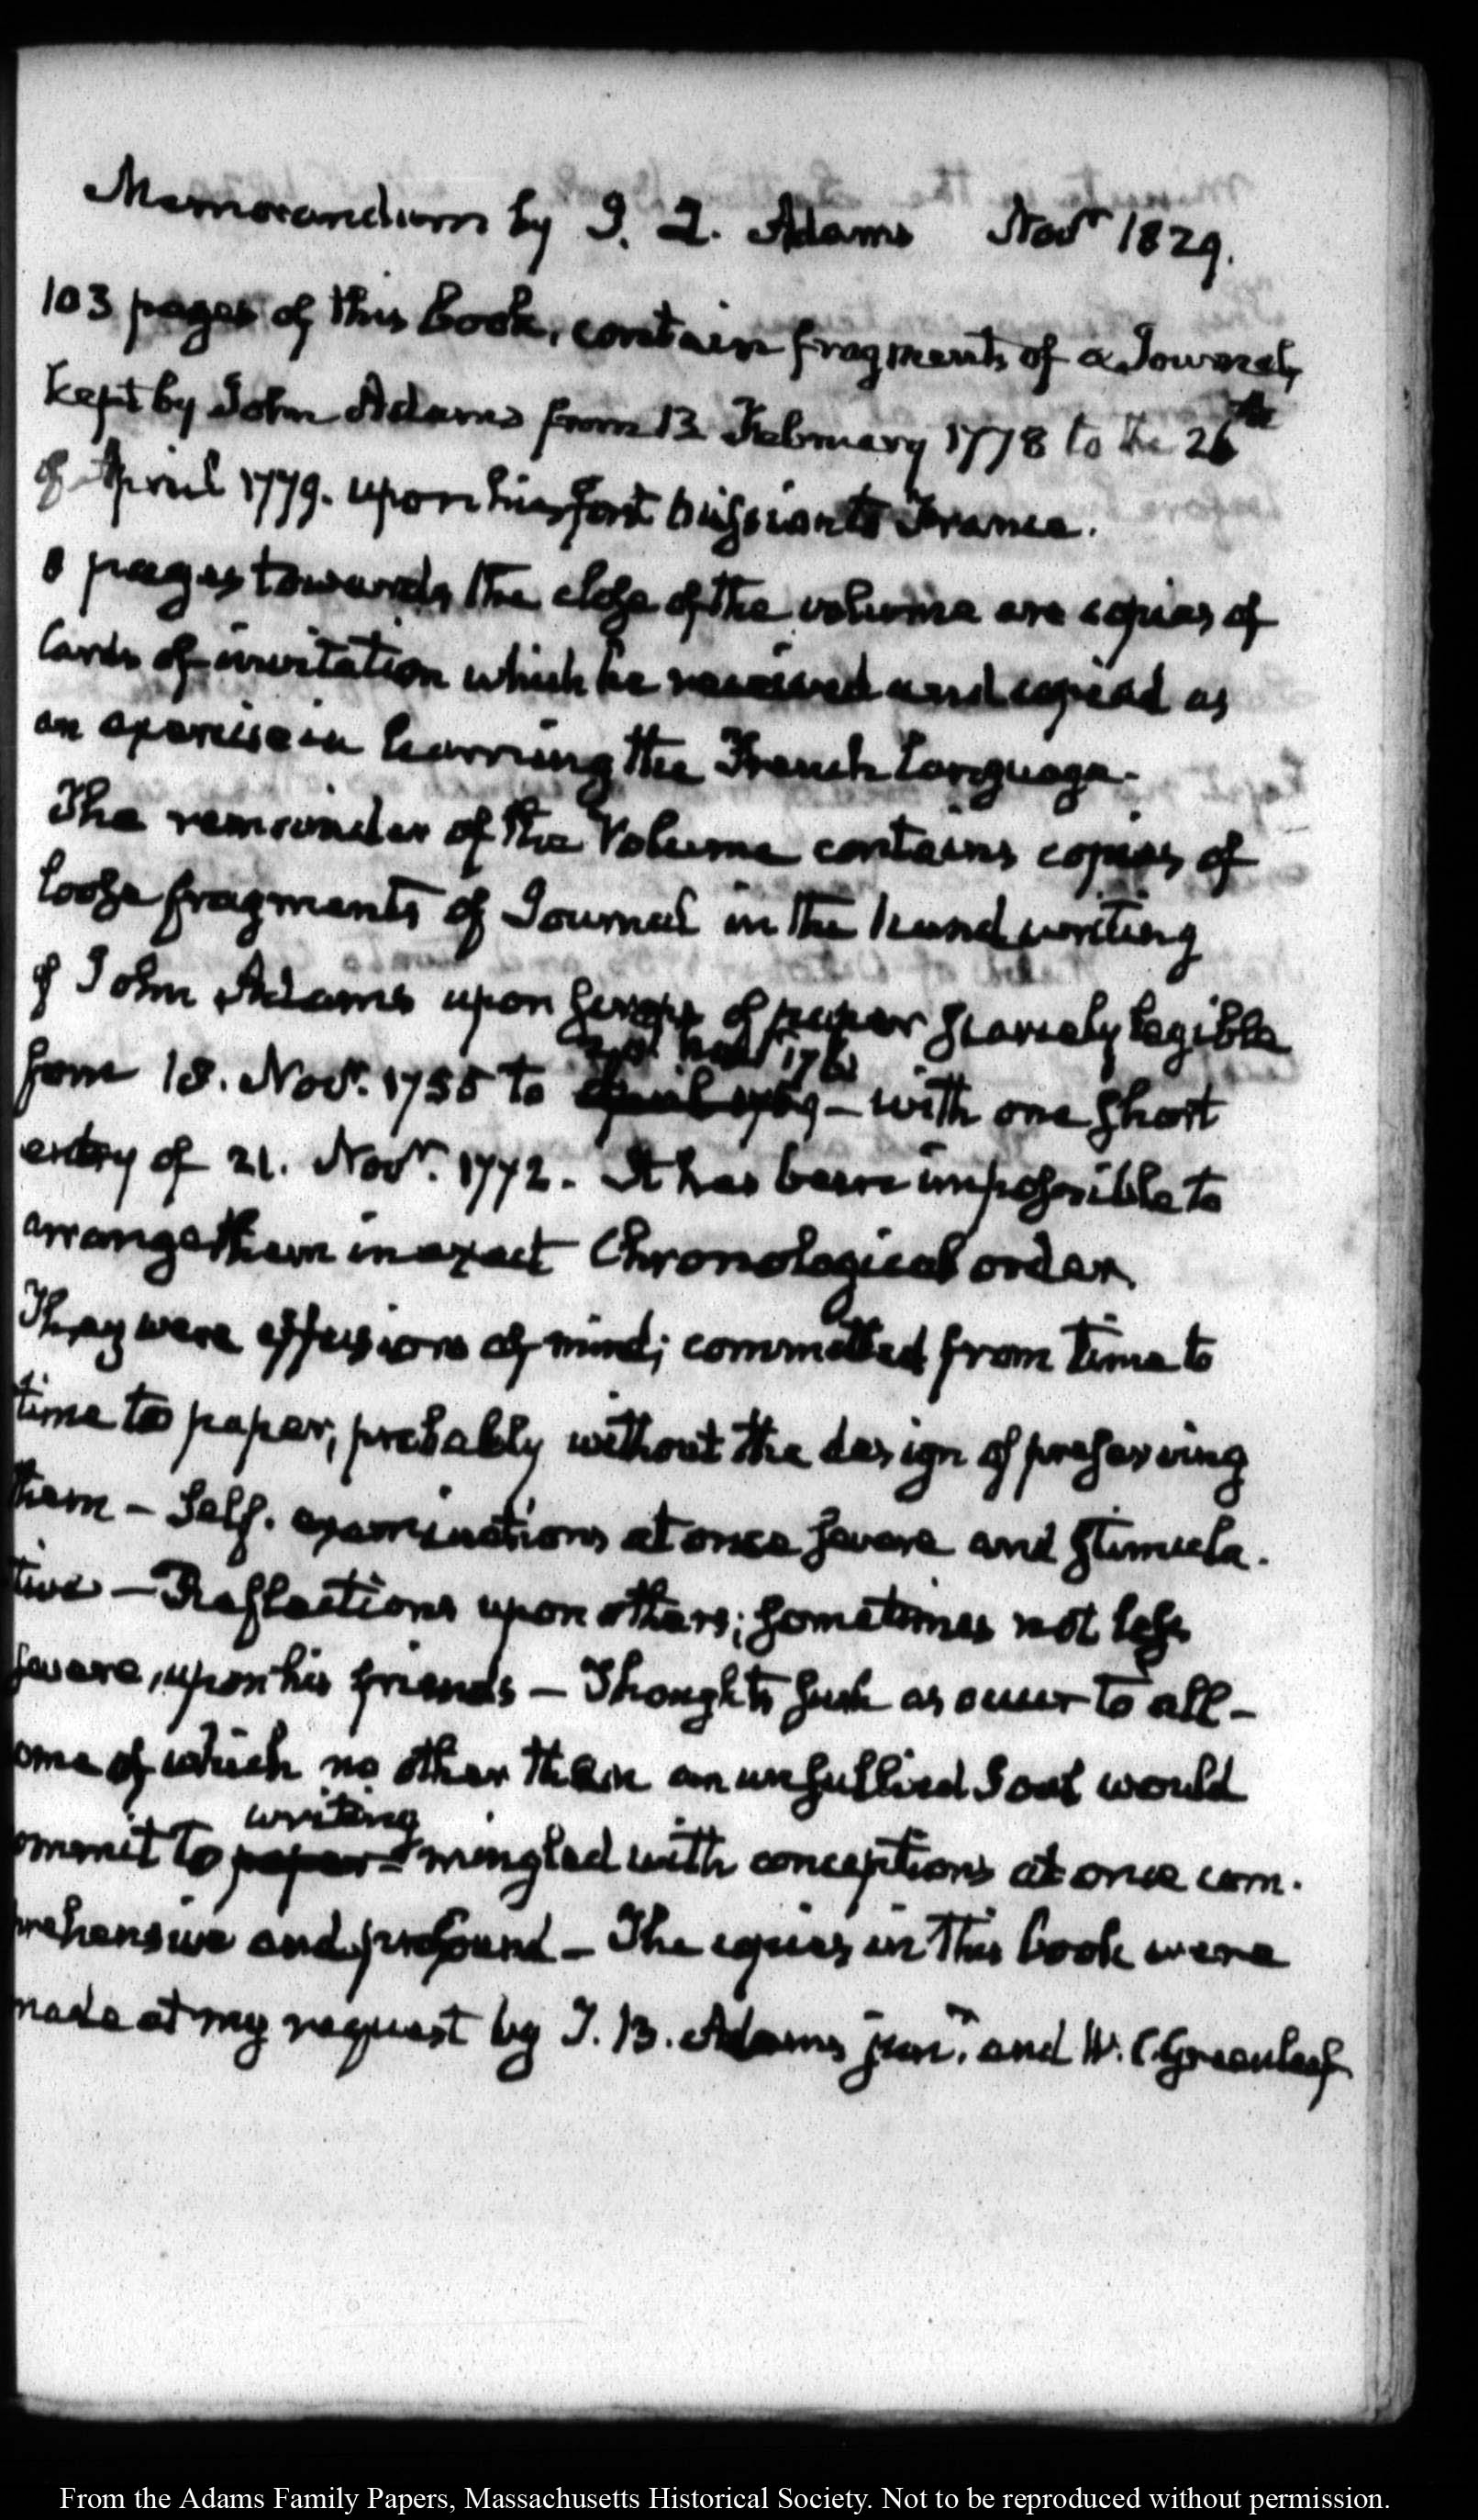 Memorandum by J. Q. Adams Novr 1829.
103 pages of this book, contain fragments of a Journal,
kept by John Adams from 13 February 1778 to the 26th
of April 1779. upon his first mission to France.
8 pages towards the close of the volume are copies of
Cards of invitation which he received and copied as
an exercise in learning the French language.
The remainder of the Volume contains copies of
loose fragments of Journal in the hand writing
of John Adams upon scraps of paper scarcely legible
from 18. Novr. 1755 to 1761
April 1769 — with one short
entry of 21. Novr. 1772. It has been impossible to
arrange them in exact Chronological order.
They were effusions of mind; committed from time to
time to paper, probably without the design of preserving
them — Self. examinations at once severe and stimula.
tive — Reflections upon others; sometimes not less
severe, upon his friends — Thoughts such as occur to all —
ome of which no other than an unsullied Soul would
writing
ommit to paper — mingled with conceptions at once com.
prehensive and profound — The copies in this book were
made at my request by T. B. Adams junr. and W. C. Greenleaf
From the Adams Family Papers, Massachusetts Historical Society. Not to be reproduced without permission.